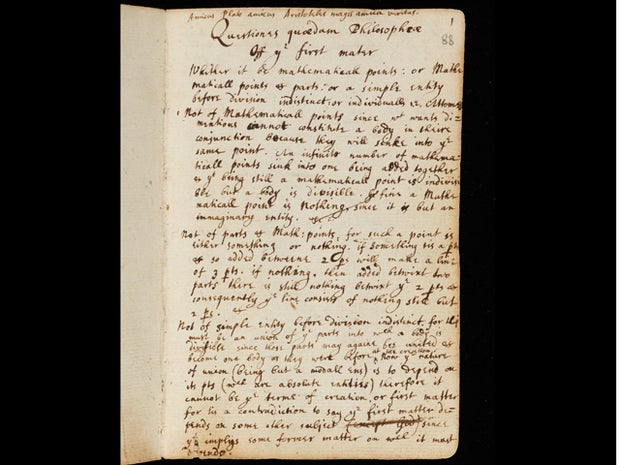 Amicus Plato amicus Aristoteles magis amica veritas.
1
88
Questiones quædam Philosophcæ
Off yᵉ first mater
Whither it be mathematicall points: or Mathe
maticall points & parts: or a simple entity
before division indistinct: or individualls i.e. Attomes
Not of Mathematicall points since wᵗ wants di-
mentions cannot constitute a body in theire
conjunction because they will sinke into yᵉ
same point. An infinite number of mathema-
ticall points sink into one being added together
& yᵗ being still a mathematicall point is indivisi
ble but a body is divisible. fine a Mathe
maticall point is nothing since it is but an
immaginary entity. &c:
Not of parts & Math: points; for such a point is
either something or nothing. if something tis a pt
& so added betweene 2 pts will make a line
of 3 pts. if nothing. then added betwixt two
parts there is still nothing betwixt yᵉ 2 pts &
consequently yᵉ line consists of nothing still but
2 pts. &c
Not of simple entity before division indistinct, for this
must be an union of yᵉ parts into wᶜʰ a body is
divisible since those parts may againe bee united &
become one body as they were before at the creation. now yᵉ nature
of union (being but a modall ens) is to depend on
its pts (wᶜʰ are absolute entities) therefore it
cannot be yᵉ terme of creation, or first matter
for tis a contradiction to say yᵉ first matter de-
pends on some other subject (except God) since
yᵗ implys some former matter on wᶜʰ it must
depend.